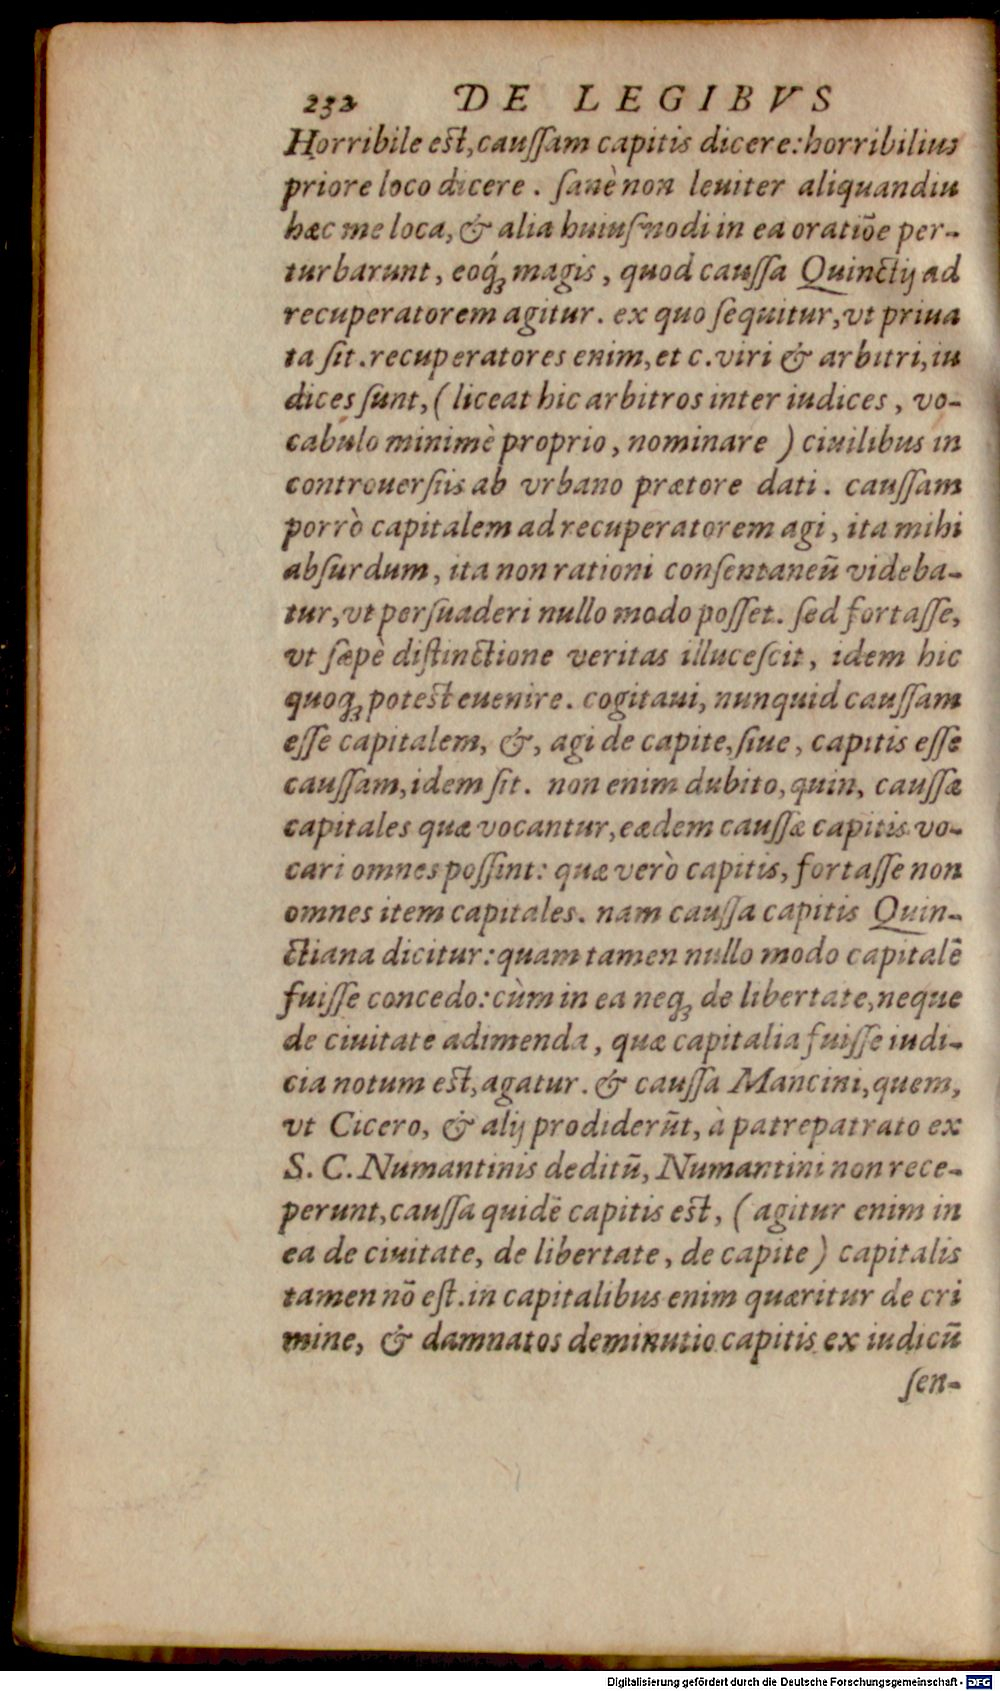 232 DE LEGIBVS
Horribile est, cauſſam capitis dicere: horribilius
priore loco dicere. ſanè non leuiter aliquandiu
hæc me loca, & alia huiuſmodi in ea oratiõe per-
turbarunt, eoq́ꝫ magis, quod cauſſa Quinctij ad
recuperatorem agitur. ex quo ſequitur, vt priua
ta ſit. recuperatores enim, et c. viri & arbitri, iu
dices ſunt, (liceat hic arbitros inter iudices, vo-
cabulo minimè proprio, nominare) ciuilibus in
controuerſiis ab vrbano prætore dati. cauſſam
porrò capitalem ad recuperatorem agi, ita mihi
abſurdum, ita non rationi conſentaneũ videba-
tur, vt perſuaderi nullo modo poſſet. ſed fortaſſe,
vt ſæpè diſtinctione veritas illuceſcit, idem hic
quoqꝫ potest euenire. cogitaui, nunquid cauſſam
eſſe capitalem, &, agi de capite, ſiue, capitis eſſe
cauſſam, idem ſit. non enim dubito, quin, cauſſæ
capitales quæ vocantur, eædem cauſſæ capitis vo-
cari omnes poſſint: quæ verò capitis, fortaſſe non
omnes item capitales. nam cauſſa capitis Quin-
ctiana dicitur: quam tamen nullo modo capitalẽ
fuiſſe concedo: cùm in ea neqꝫ de libertate, neque
de ciuitate adimenda, quæ capitalia fuiſſe iudi-
cia notum est, agatur. & cauſſa Mancini, quem,
vt Cicero, & alij prodiderũt, à patrepatrato ex
S. C. Numantinis deditũ, Numantini non rece-
perunt, cauſſa quidẽ capitis est, (agitur enim in
ea de ciuitate, de libertate, de capite) capitalis
tamen nõ eſt. in capitalibus enim quæritur de cri
mine, & damnatos deminutio capitis ex iudicũ
ſen-
Digitalisierung gefördert durch die Deutsche Forschungsgemeinschaft - DFG